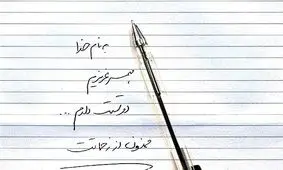 به نام خدا
همسر عزیزم
دوستت دارم...
ممنون از زحماتت